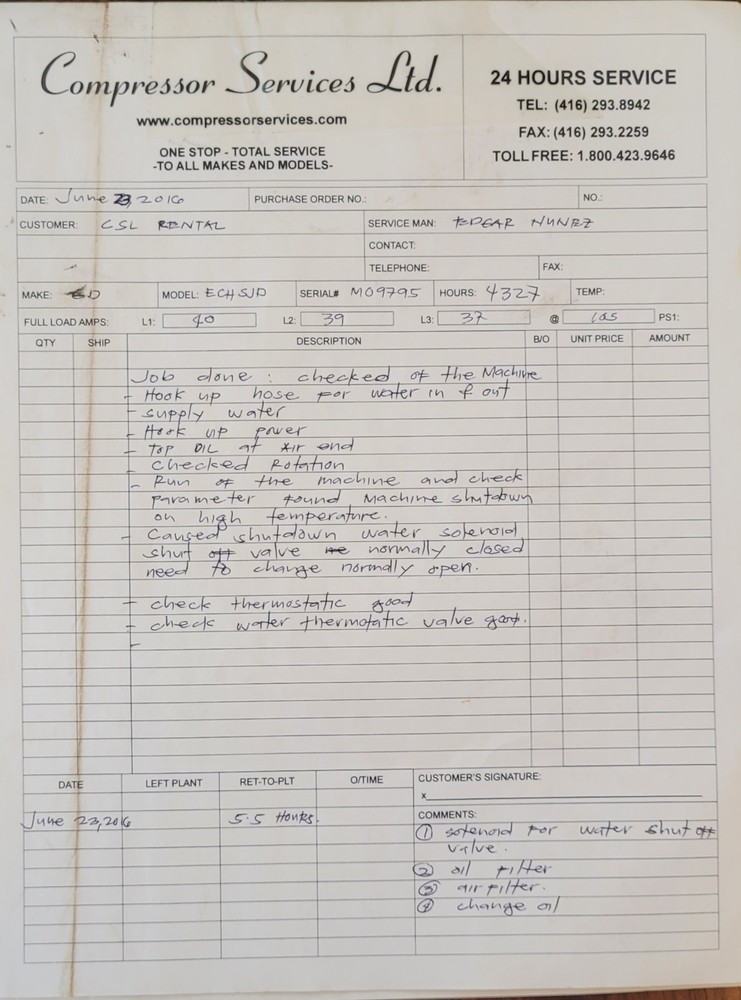 Compressor Services Ltd.
www.compressorservices.com
ONE STOP - TOTAL SERVICE
-TO ALL MAKES AND MODELS-
24 HOURS SERVICE
TEL: (416) 293.8942
FAX: (416) 293.2259
TOLL FREE: 1.800.423.9646
DATE: June 23, 2016 PURCHASE ORDER NO.: NO.:
CUSTOMER: CSL RENTAL SERVICE MAN: EDGAR NUNEZ
CONTACT:
TELEPHONE: FAX:
MAKE: MODEL: ECHSJD SERIAL# M09795 HOURS: 4327 TEMP:
FULL LOAD AMPS: L1: 40 L2: 39 L3: 37 @ 105 PS1:
QTY SHIP DESCRIPTION B/O UNIT PRICE AMOUNT
Job done : checked of the Machine
- Hook up hose for water in & out
- supply water
- Hook up power
- TOP OIL at Air end
- checked Rotation
- Run of the machine and check
parameter found Machine shutdown
on high temperature.
- Caused shutdown water solenoid
shut off valve normally closed
need to change normally open.
- check thermostatic good
- check water thermotatic valve good.
-
DATE LEFT PLANT RET-TO-PLT O/TIME CUSTOMER'S SIGNATURE:
x
June 23, 2016 5.5 Hours. COMMENTS:
① solenoid for water shut off
valve.
② oil filter
③ air filter.
④ change oil